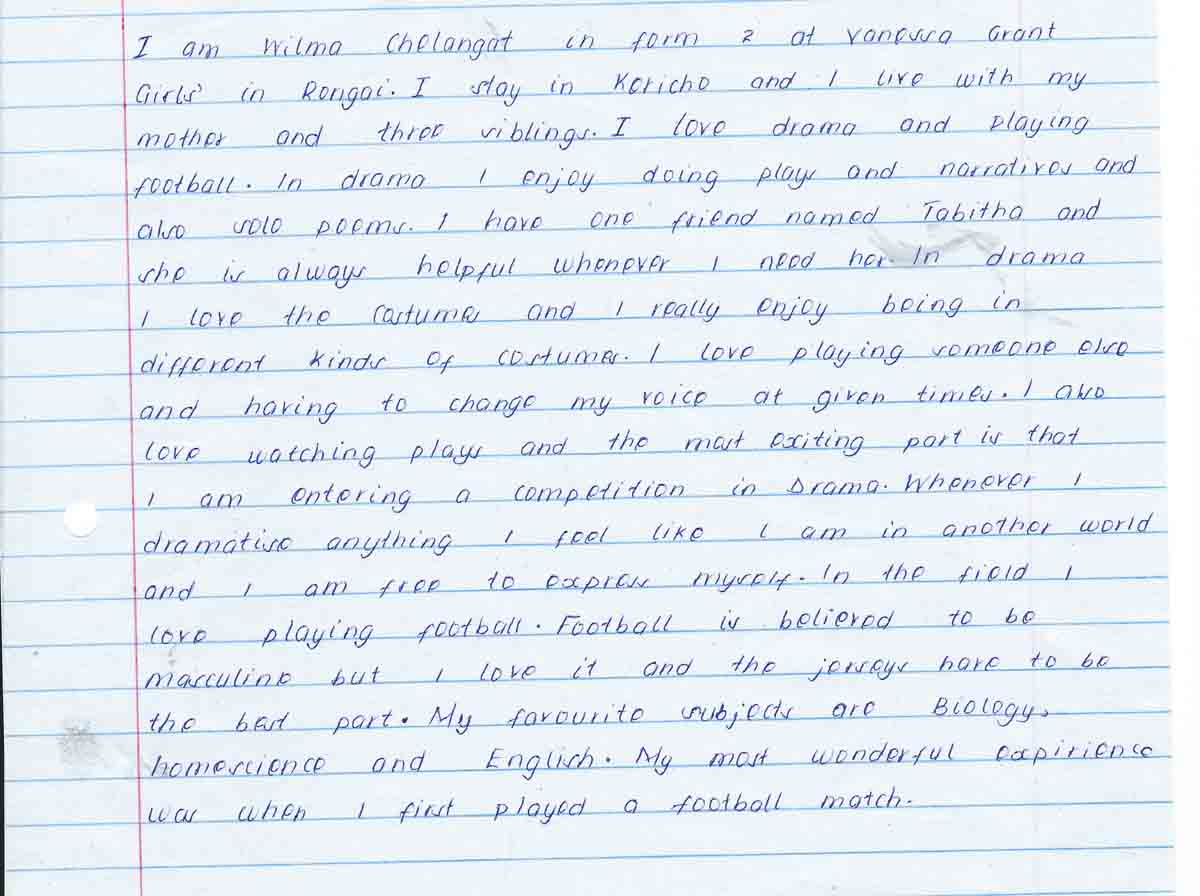 I am Wilma Chelangat in form 2 at Vanessa Grant
Girls' in Rongai. I stay in Kericho and I live with my
mother and three siblings. I love drama and playing
football. In drama I enjoy doing plays and narratives and
also solo poems. I have one friend named Tabitha and
she is always helpful whenever I need her. In drama
I love the costumes and I really enjoy being in
different kinds of costumes. I love playing someone else
and having to change my voice at given times. I also
love watching plays and the most exiting part is that
I am entering a competition in Drama. Whenever I
dramatise anything I feel like I am in another world
and I am free to express myself. In the field I
love playing football. Football is believed to be
masculine but I love it and the jerseys have to be
the best part. My favourite subjects are Biology,
homescience and English. My most wonderful expirience
was when I first played a football match.